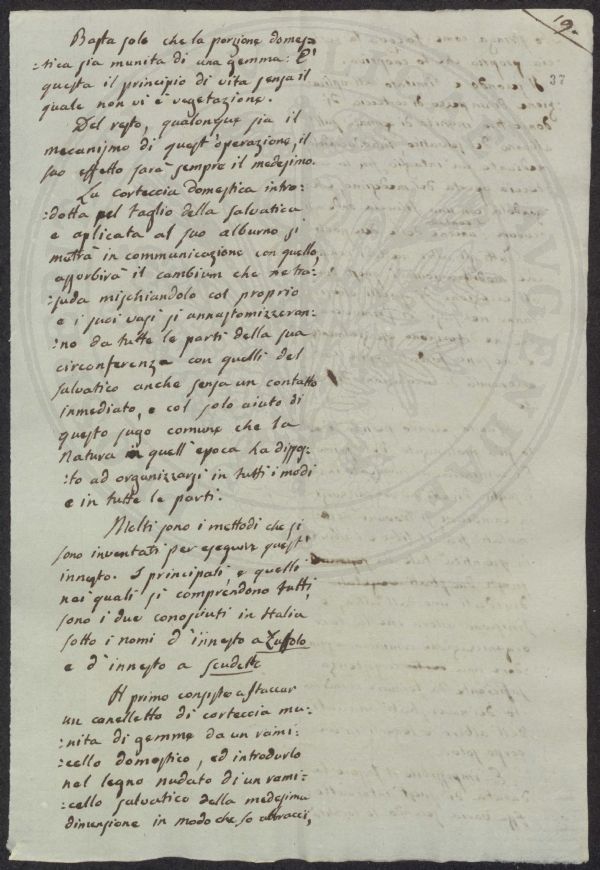 19.
37
Basta solo che la porzione domes=
=tica sia munita di una gemma: E'
questa il principio di vita senza il
quale non vi è vegetazione.
Del resto, qualonque sia il
mecanismo di quest'operazione, il
suo effetto sarà sempre il medesimo.
La corteccia domestica intro=
=dotta pel taglio della salvatica
e aplicata al suo alburno si
mettrà in communicazione con quello,
assorbirà il cambium che ne tra=
=suda mischiandolo col proprio
e i suoi vasi si annastomizzeran=
=no da tutte le parti della sua
circonferenza con quelli del
salvatico anche senza un contatto
inmediato, e col solo aiuto di
questo sugo comune che la
Natura in quell'epoca ha dispos=
=to ad organizzarsi in tutti i modi
e in tutte le parti.
Molti sono i mettodi che si
sono inventati per eseguire quest'
innesto. I principali, e quelli
nei quali si comprendono tutti,
sono i due conosciuti in Italia
sotto i nomi d'innesto a Zuffolo
e d'innesto a scudetto
Il primo consiste a staccar
un canelletto di corteccia mu=
=nita di gemme da un rami=
=cello domestico, ed introdurlo
nel legno nudato di un rami=
=cello salvatico della medesima
dimensione in modo che lo abbracci,